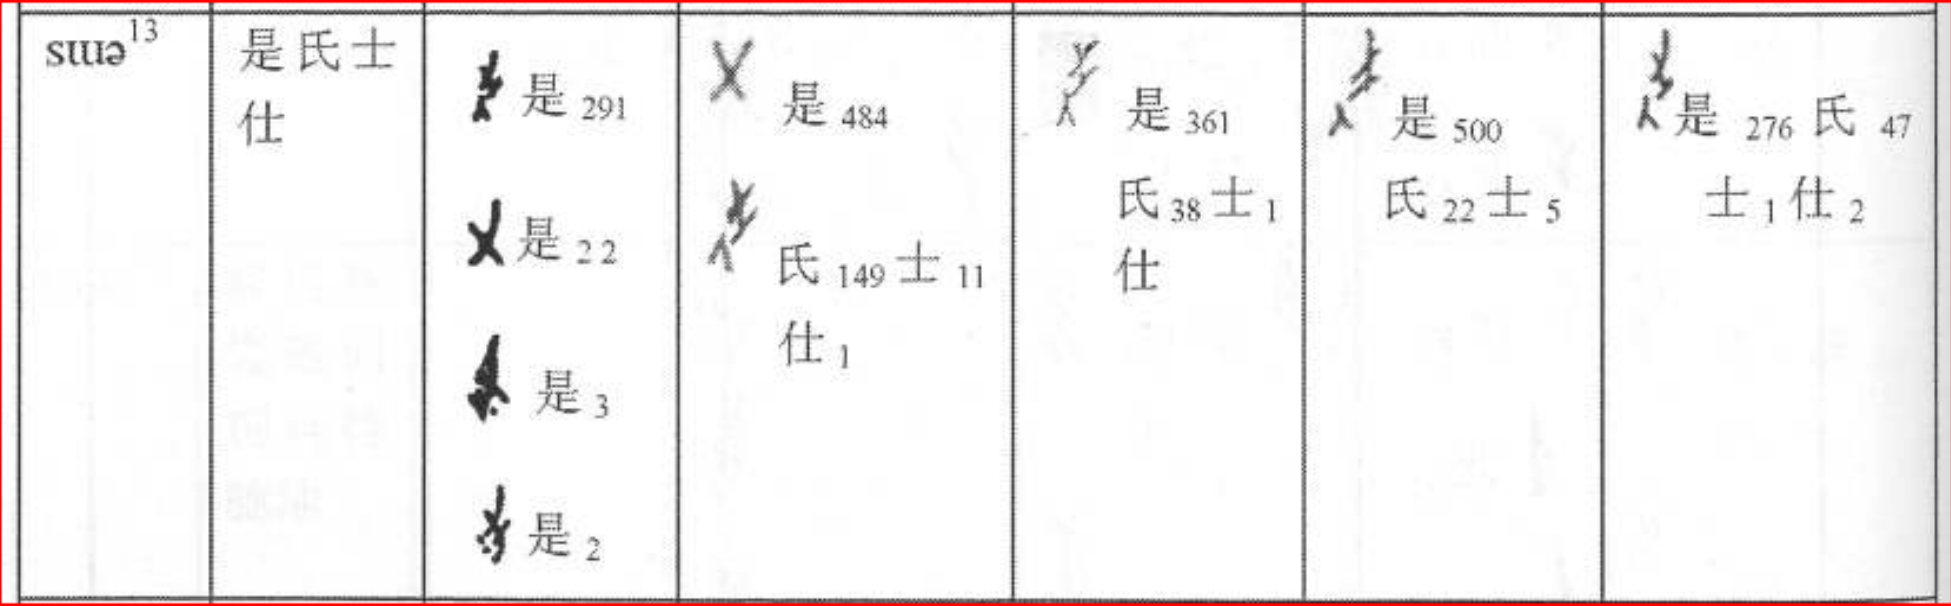 sɯə¹³
是氏士
仕
是 291
是 22
是 3
是 2
是 484
氏 149 士 11
仕 1
是 361
氏 38 士 1
仕
是 500
氏 22 士 5
是 276 氏 47
士 1 仕 2